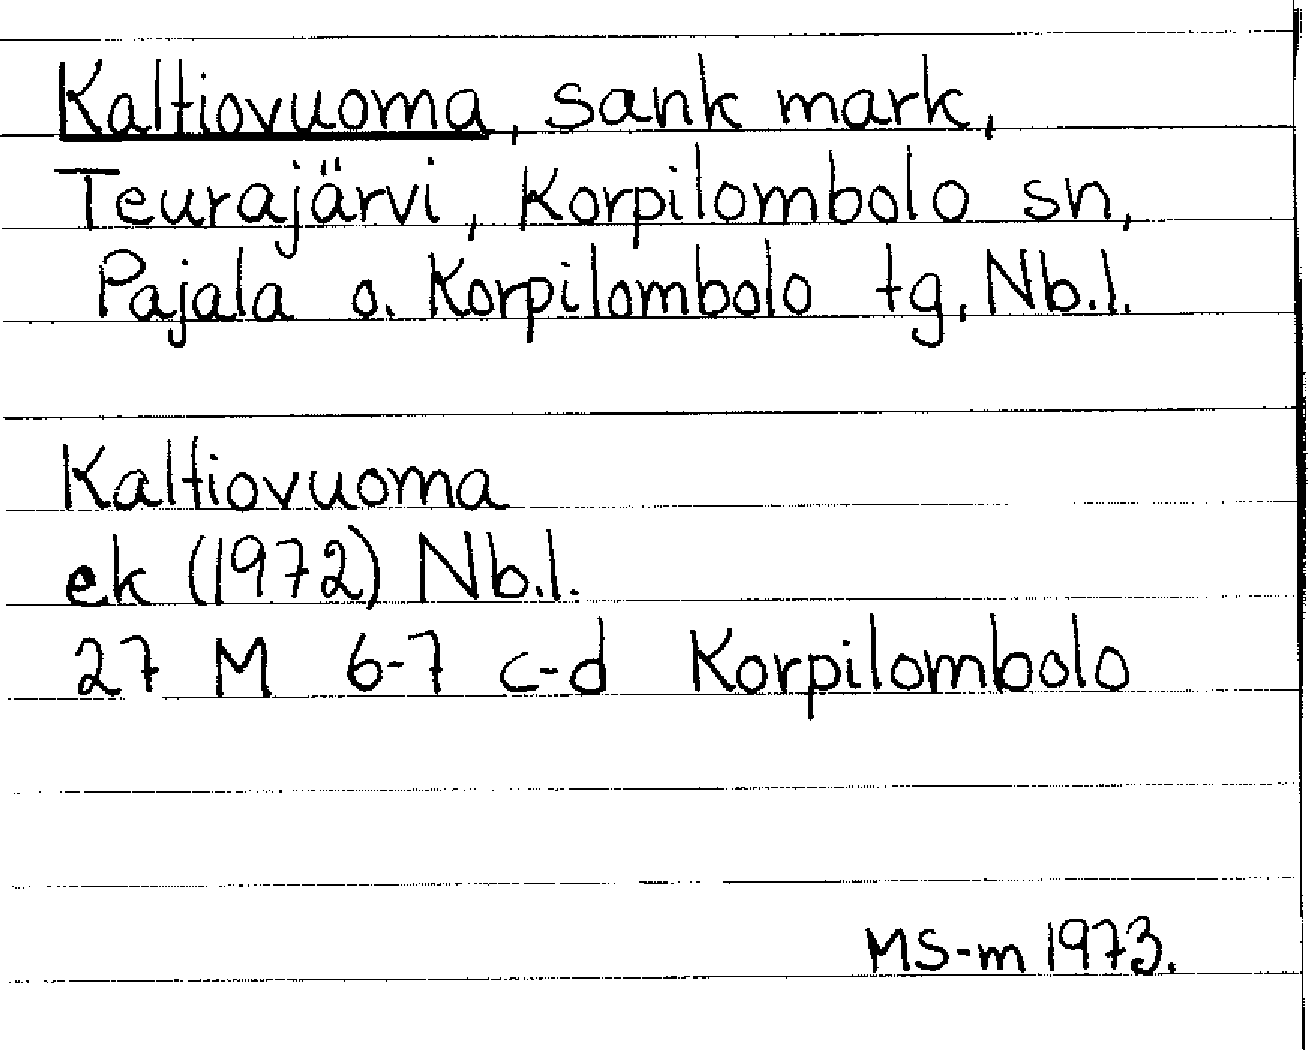 Kaltiovuoma, sank mark,
Teurajärvi, Korpilombolo sn,
Pajala o. Korpilombolo tg, Nb.l.
Kaltiovuoma
ek (1972) Nb.l.
27 M 6-7 c-d Korpilombolo
MS-m 1973.